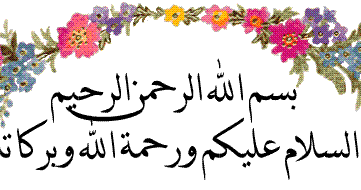 بسم الله الرحمن الرحيم
السلام عليكم ورحمة الله وبركات